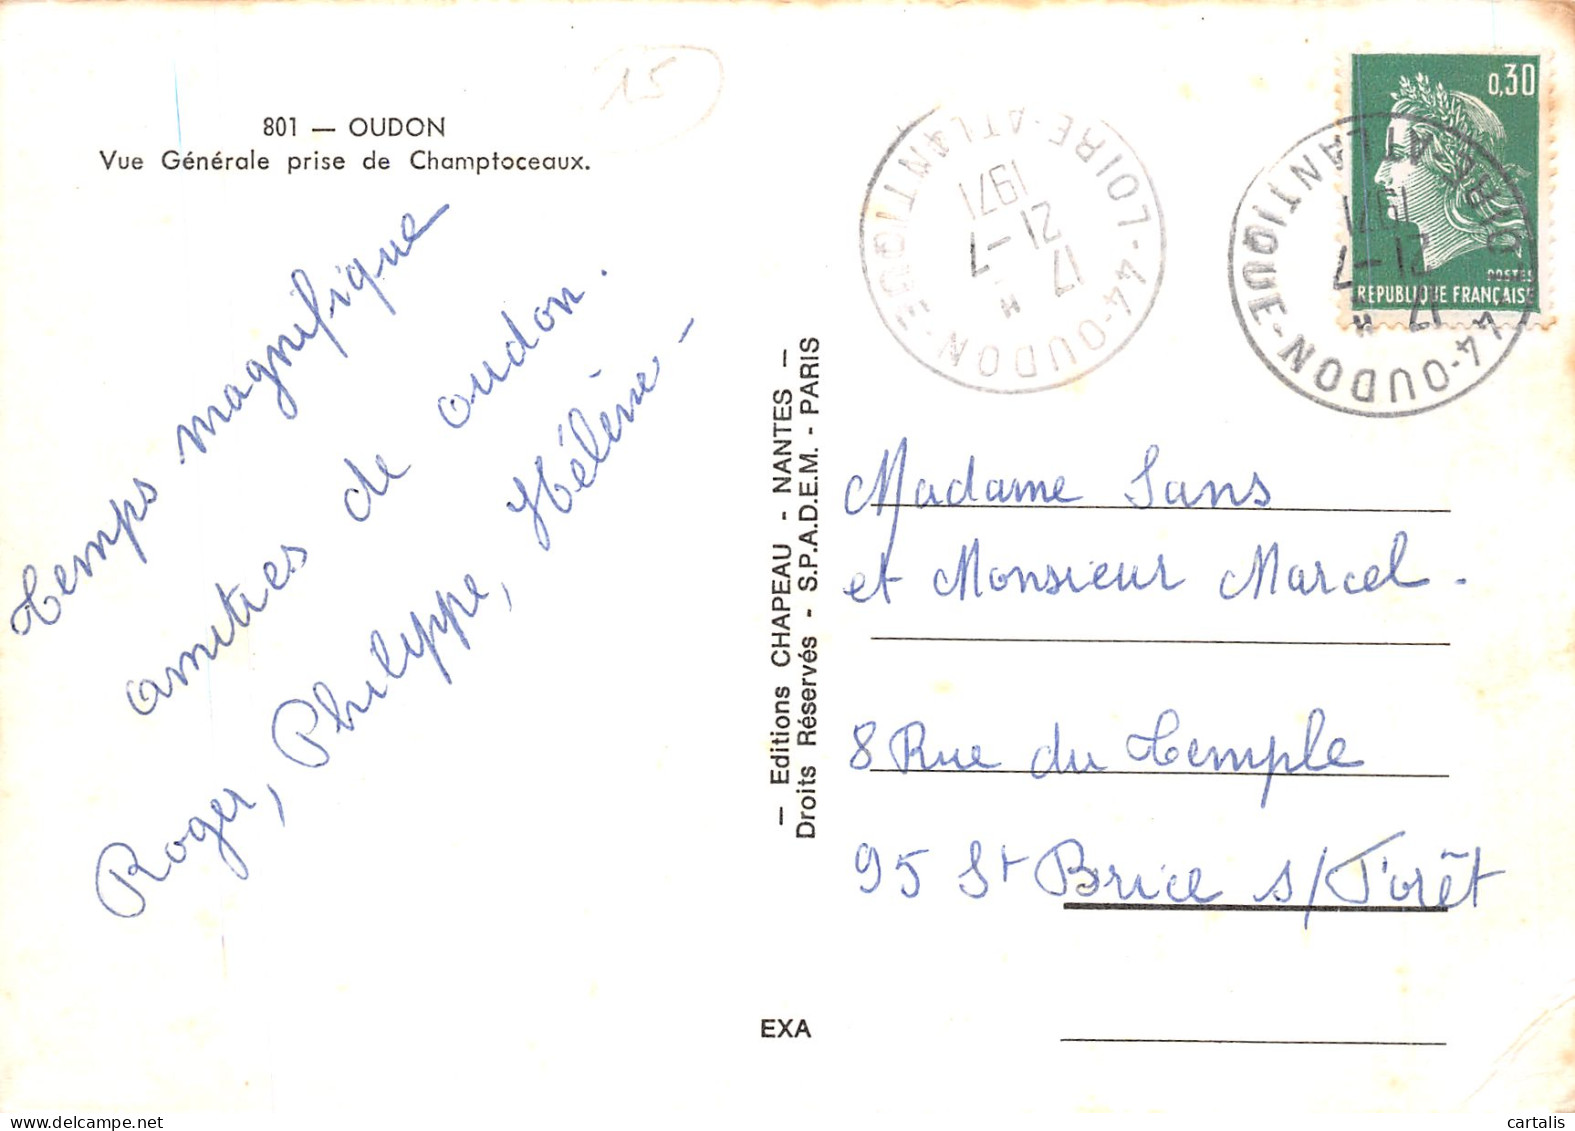 15
801 — OUDON
Vue Générale prise de Champtoceaux.
temps magnifique
amitiés de oudon.
Roger, Philippe, Hélène -
— Editions CHAPEAU - NANTES —
Droits Réservés - S.P.A.D.E.M. - PARIS
EXA
44-OUDON-LOIRE-ATLANTIQUE-
17 H
21-7
1971
44-OUDON-LOIRE-ATLANTIQUE-
17 H
21-7
1971
0,30
POSTES
REPUBLIQUE FRANÇAISE
Madame Sans
et Monsieur Marcel -
8 Rue du Temple
95 St Brice s/ Forêt
delcampe.net
cartalis